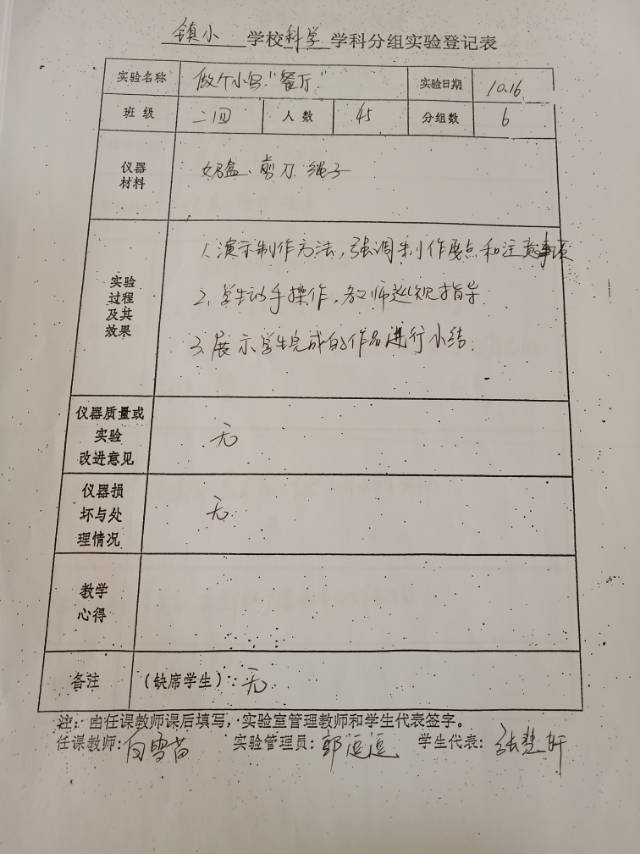 镇小 学校科学学科分组实验登记表
实验名称 做个小鸟"餐厅" 实验日期 10.16
班级 二四 人数 45 分组数 6
仪器材料 奶盒、剪刀、绳子
实验过程及其效果
1、演示制作方法,强调制作要点和注意事项
2、学生动手操作,教师巡视指导
3、展示学生完成的作品进行小结.
仪器质量或实验改进意见 无
仪器损坏与处理情况 无.
教学心得
备注 (缺席学生):无
注:由任课教师课后填写,实验室管理教师和学生代表签字。
任课教师:白雪苗 实验管理员:郭逗逗 学生代表:张楚轩